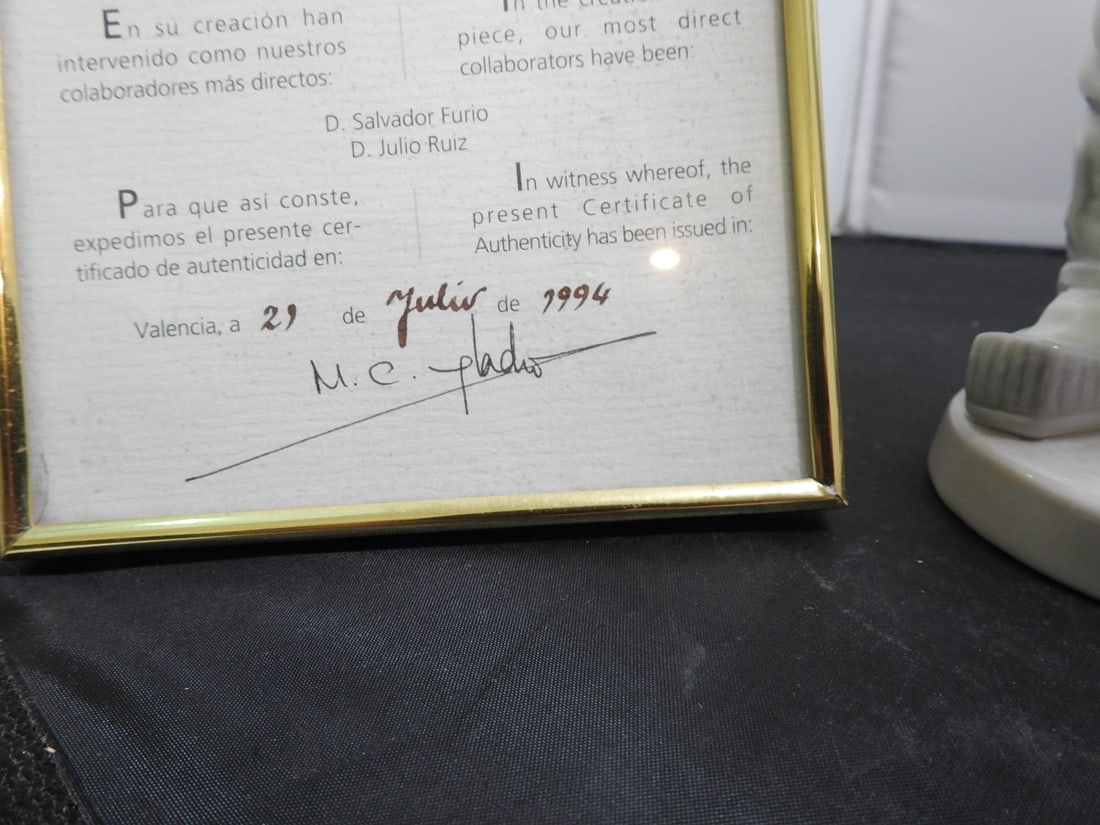 En su creación han
intervenido como nuestros
colaboradores más directos:
In the
piece, our most direct
collaborators have been:
D. Salvador Furio
D. Julio Ruiz
Para que así conste,
expedimos el presente cer-
tificado de autenticidad en:
In witness whereof, the
present Certificate of
Authenticity has been issued in:
Valencia, a 21 de Julio de 1994
M. C.